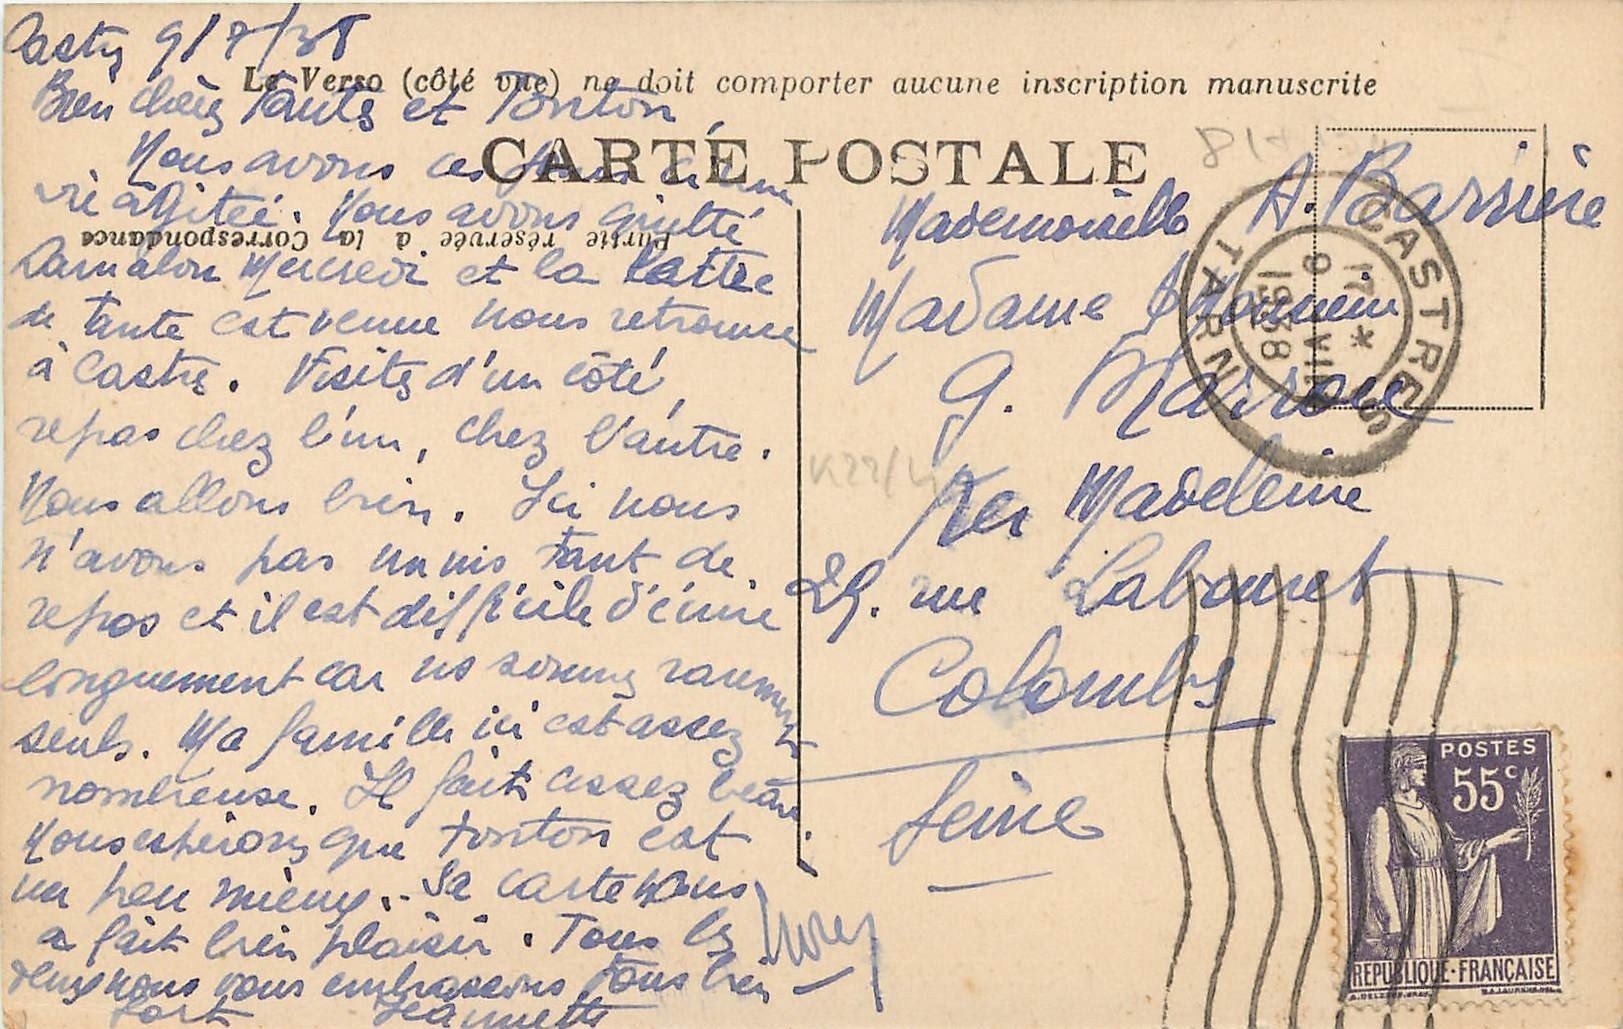 Castres 9/7/38
Le Verso (côté vue) ne doit comporter aucune inscription manuscrite
Bien chers Tante et Tonton,
CARTE POSTALE
Nous avons ces jours ci une
vie agitée. Nous avons quitté
Partie réservée à la Correspondance
Mercredi et la lettre
de tante est venue nous retrouver
à Castres. Visites d'un côté,
repas chez l'un, chez l'autre.
Nous allons bien. Ici nous
n'avons pas tant de
repos et il est difficile d'écrire
longuement car ns sommes rarement
seuls. Ma famille ici est assez
nombreuse. Il fait assez beau.
Nous espérons que tonton est
un peu mieux. Sa carte nous
a fait bien plaisir. Tous les
deux nous vous embrassons tous bien
fort Jeannette
Mademoiselle A. Barrière
Madame
G. Marrou
Madeleine
29. rue Labouret
Colombes
Seine
CASTRES
TARN
17 *
9 VII
1938
POSTES
55c
REPUBLIQUE·FRANÇAISE